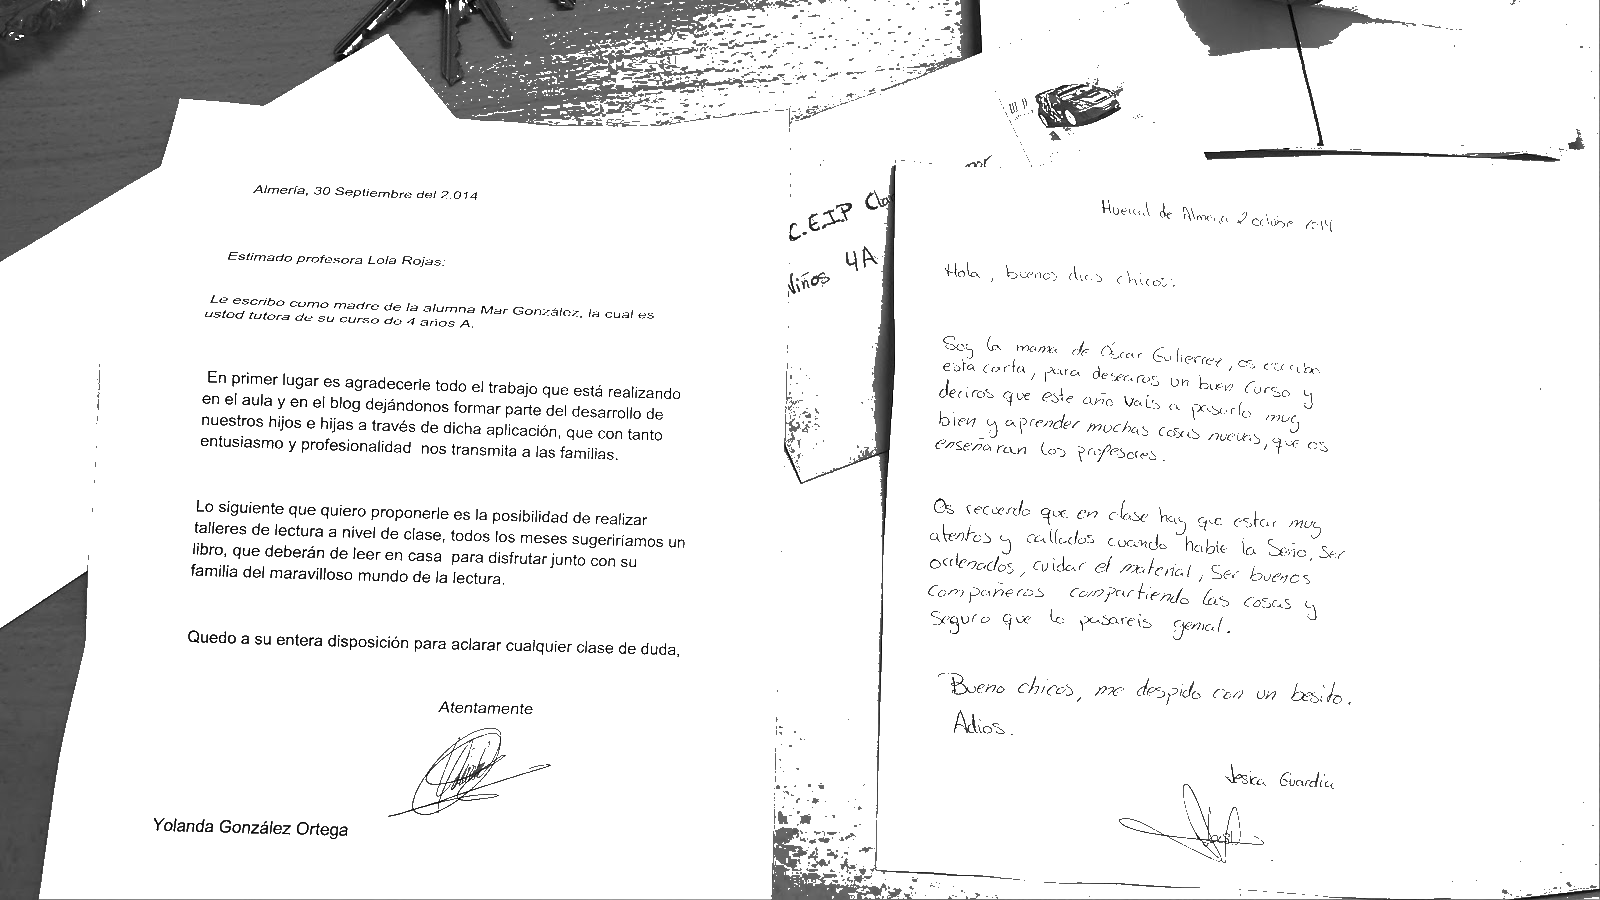 Almería, 30 Septiembre del 2.014
Estimado profesora Lola Rojas:
Le escribo como madre de la alumna Mar González, la cual es
usted tutora de su curso de 4 años A.
En primer lugar es agradecerle todo el trabajo que está realizando
en el aula y en el blog dejándonos formar parte del desarrollo de
nuestros hijos e hijas a través de dicha aplicación, que con tanto
entusiasmo y profesionalidad nos transmita a las familias.
Lo siguiente que quiero proponerle es la posibilidad de realizar
talleres de lectura a nivel de clase, todos los meses sugeriríamos un
libro, que deberán de leer en casa para disfrutar junto con su
familia del maravilloso mundo de la lectura.
Quedo a su entera disposición para aclarar cualquier clase de duda,
Atentamente
Yolanda González Ortega
C.E.I.P
Niños 4A
Huercal de Almeria 2 octubre
Hola, buenos dias chicos:
Soy la mama de Óscar Gutierrez, os escribo
esta carta, para desearos un buen curso y
deciros que este año vais a pasarlo muy
bien y aprender muchas cosas nuevas, que os
enseñaran los profesores.
Os recuerdo que en clase hay que estar muy
atentos y callados cuando hable la Seño, ser
ordenados, cuidar el material, ser buenos
compañeros compartiendo las cosas y
seguro que lo pasareis genial.
Bueno chicos, me despido con un besito.
Adios.
Jesica Guardia